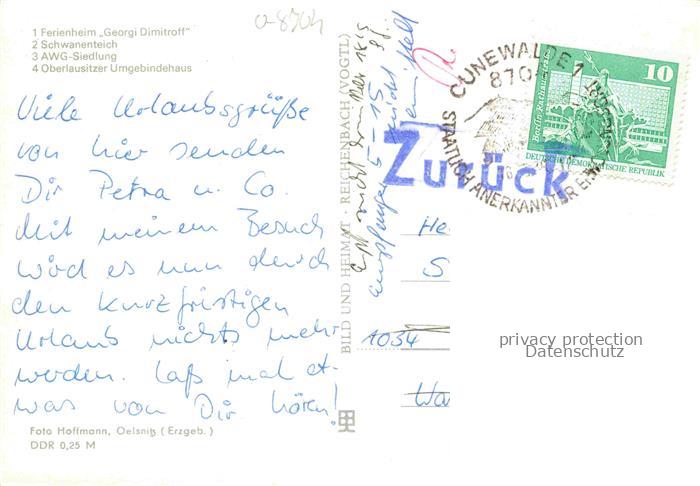 o-8704
1 Ferienheim „Georgi Dimitroff"
2 Schwanenteich
3 AWG-Siedlung
4 Oberlausitzer Umgebindehaus
Viele Urlaubsgrüße
von hier senden
Dir Petra u. Co.
Mit meinem Besuch
wird es nun durch
den kurzfristigen
Urlaub nichts mehr
werden. Laß mal et-
was von Dir hören!
Foto Hoffmann, Oelsnitz (Erzgeb.)
DDR 0,25 M
BILD UND HEIMAT · REICHENBACH (VOGTL)
Empf nicht
Empfänger 5-15
nicht
Zurück
CUNEWALDE 1
870
STAATLICH ANERKANNTER
10
Berlin, Rathausstraße
DEUTSCHE DEMOKRATISCHE REPUBLIK
He
S
1034
Wa
privacy protection
Datenschutz